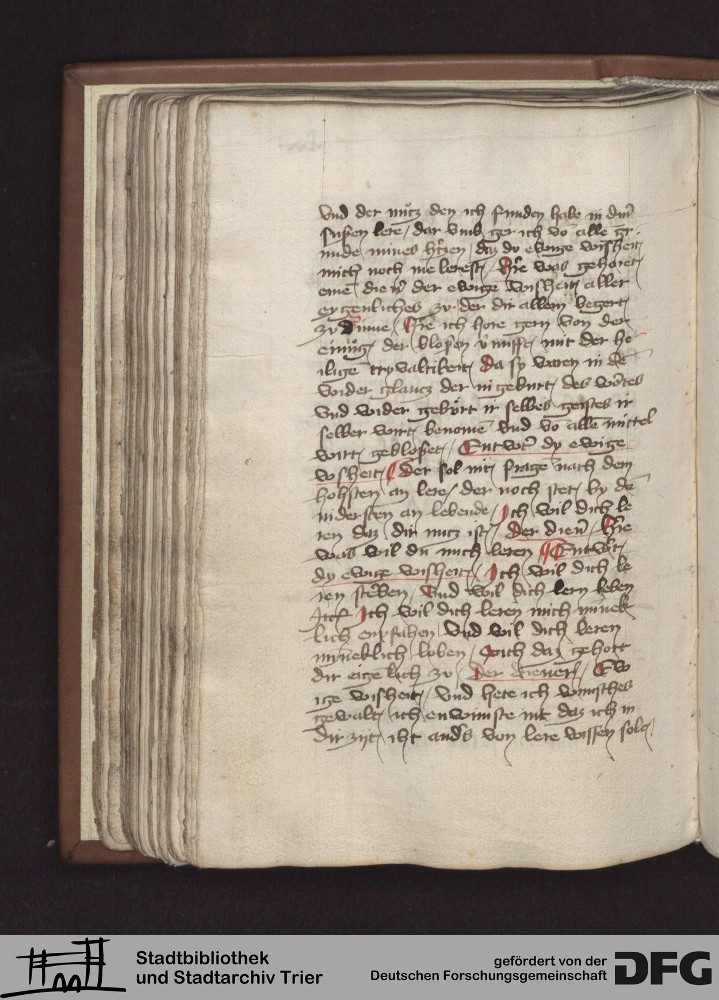 Vnd der nücz den ich funden habe in din̄
süsen lere / dar vmb ger ich vō alle gr
nde mines h'rcen / daz dv ewige wisheit
mich noch me lerest / H're was gehoret
eime dien' der ewige wisheit aller
eygenliches zv der dir allein begert
zv dinne / H're ich hore gern von der
der blosen v'nufft mit der he
ilige tryvaltikeit Da sy waren in dē
wider glancz der ingeburt des wortes
vnd wider geburt ir selbes geistes ir
selber wirt benomē vnd vō alle mittel
wirt geblöset / Entwort' dy ewige
wisheit ¶ Der sol nit frage nach dem
hohsten an lere / der noch stet by dē
nidersten an lebende / Ich wil dich le
ren daz dir nucz ist / Der dien' H're
was wil du mich leren ¶ Entwort
dy ewige wisheit / Ich wil dich le
ren sterben / Vnd wil dich lern leben
Ich wil dich leren mich minek
lich enpfahen Vnd wil dich leren
myneklich loben / Sich daz gehort
dir eigelich zv / Der diener / Ewi
ige wisheit / Vnd hete ich wunsches
gewalt ich enwunste nit daz ich in
dir zijt iht and's von lere wissen sole
Stadtbibliothek
und Stadtarchiv Trier
gefördert von der
Deutschen Forschungsgemeinschaft
DFG